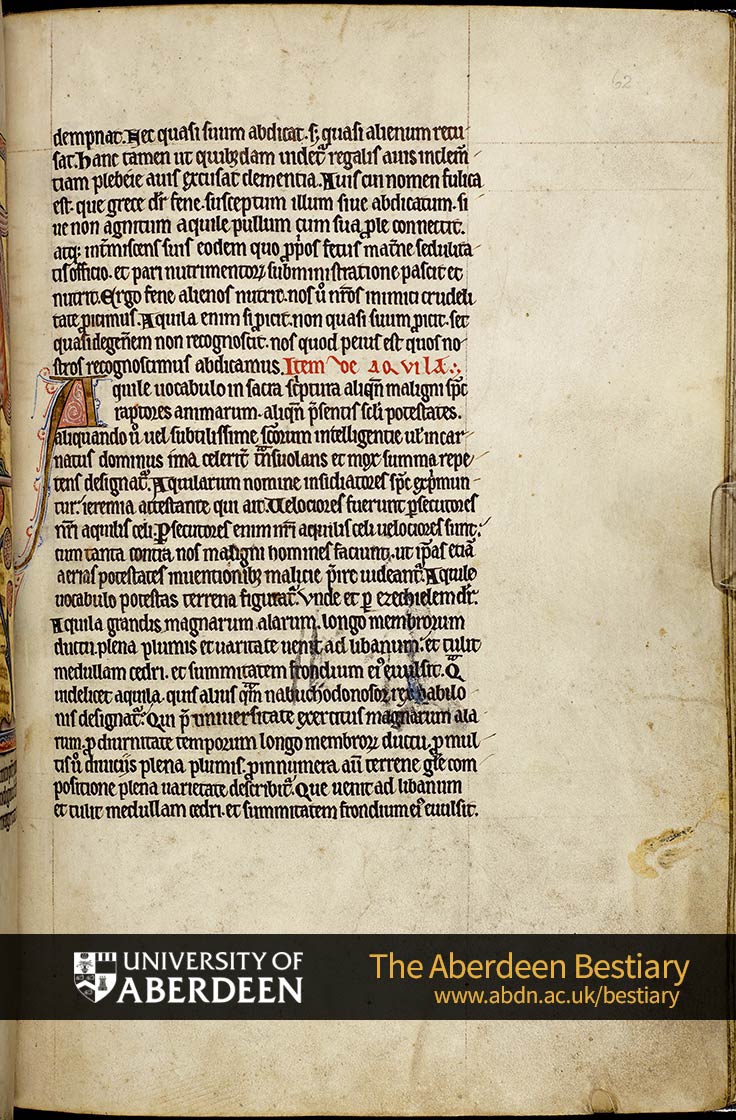 62
dempnat. Nec quasi suum abdicat. s; quasi alienum recu
sat. Hanc tamen ut quibzdam uidet᷑ regalis auis inclem̅
tiam plebeie auis excusat clementia. Auis cui nomen fulica
est. que grece dr̅ fene. susceptum illum siue abdicatum. si
ue non agnitum aquile pullum cum sua ꝓle connectit.
atq; int̅miscens suis eodem quo ꝓp̅os fetus mat̅ne sedulita
tis officio. et pari nutrimentoꝝ subministratione pascit et
nutrit. Ergo fene alienos nutrit. nos u̅ nr̅os inimici crudeli
tate ꝓicimus. Aquila enim si ꝓicit. non quasi suum ꝓicit. set
quasi degn̅em non recognoscit. nos quod peius est quos no
stros recognoscimus abdicamus. Item de aquila.
Aquile uocabulo in sacra sc̅ptura aliqn̅ maligni sp̅c
raptores animarum. aliqn̅ p̅sentis sc̅li potestates.
aliquando u̅ uel subtilissime sc̅orum intelligentie ul̅ incar
natus dominus ima celerit̅ t̅nsuolans et mox summa repe
tens designat᷑. Aquilarum nomine insidiatores sp̅c exp̅mun
tur. ieremia attestante qui ait. Velociores fuerunt ꝑsecutores
nr̅i aquilis celi. Ꝑsecutores enim nr̅i aquilis celi uelociores sunt.
cum tanta contra nos maligni homines faciunt. ut ip̅as etia̅
aerias potestates inuentionibz malicie p̅ire uideant᷑. Aquile
uocabulo potestas terrena figurat᷑. Vnde et ꝑ ezechielem dr̅.
Aquila grandis magnarum alarum. longo membrorum
ductu. plena plumis et uaritate uenit ad libanum. et tulit
medullam cedri. et summitatem frondium ei᷒ euulsit. Q̅
uidelicet aquila. quis alius qm̅ nabuchodonosor rex babilo
nis designat᷑. Qui p̅ uniuersitate exercitus magnarum ala
rum. ꝓ diurnitate temporum longo membroꝝ ductu. ꝓ mul
tis u̅ diuiciis plena plumis. ꝓ innumera au̅ terrene gl̅e com
positione plena uarietate describit᷑. Que uenit ad libanum
et tulit medullam cedri. et summitatem frondium ei᷒ euulsit.
UNIVERSITY OF
ABERDEEN
The Aberdeen Bestiary
www.abdn.ac.uk/bestiary